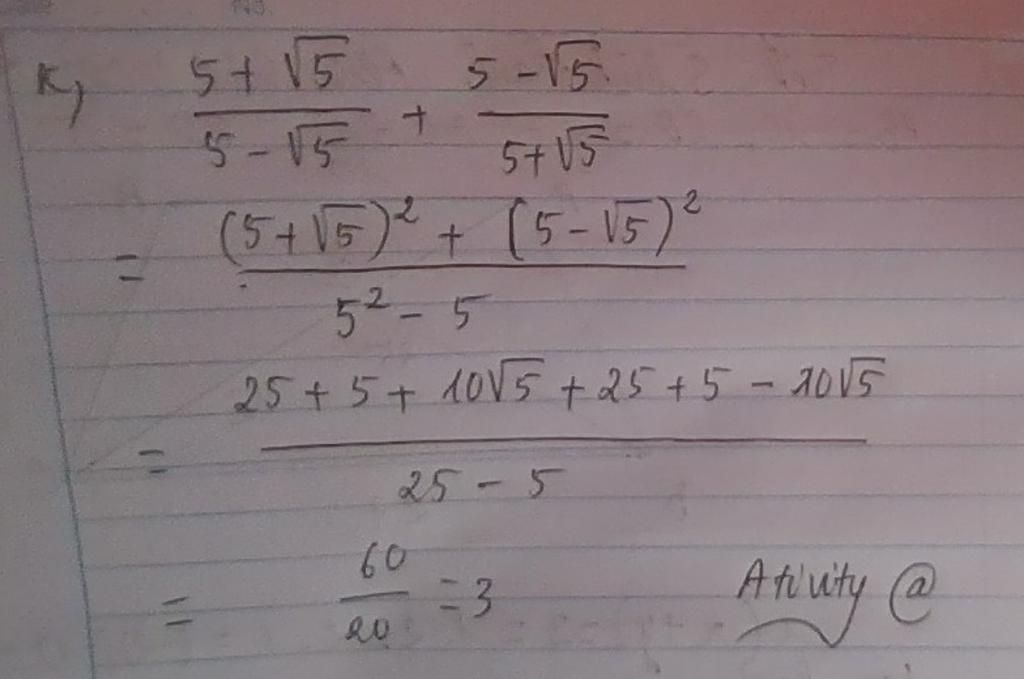 K, (5 + √5)/(5 - √5) + (5 - √5)/(5 + √5)
= ((5 + √5)² + (5 - √5)²)/(5² - 5)
= (25 + 5 + 10√5 + 25 + 5 - 10√5)/(25 - 5)
= 60/20 = 3 Ativity @